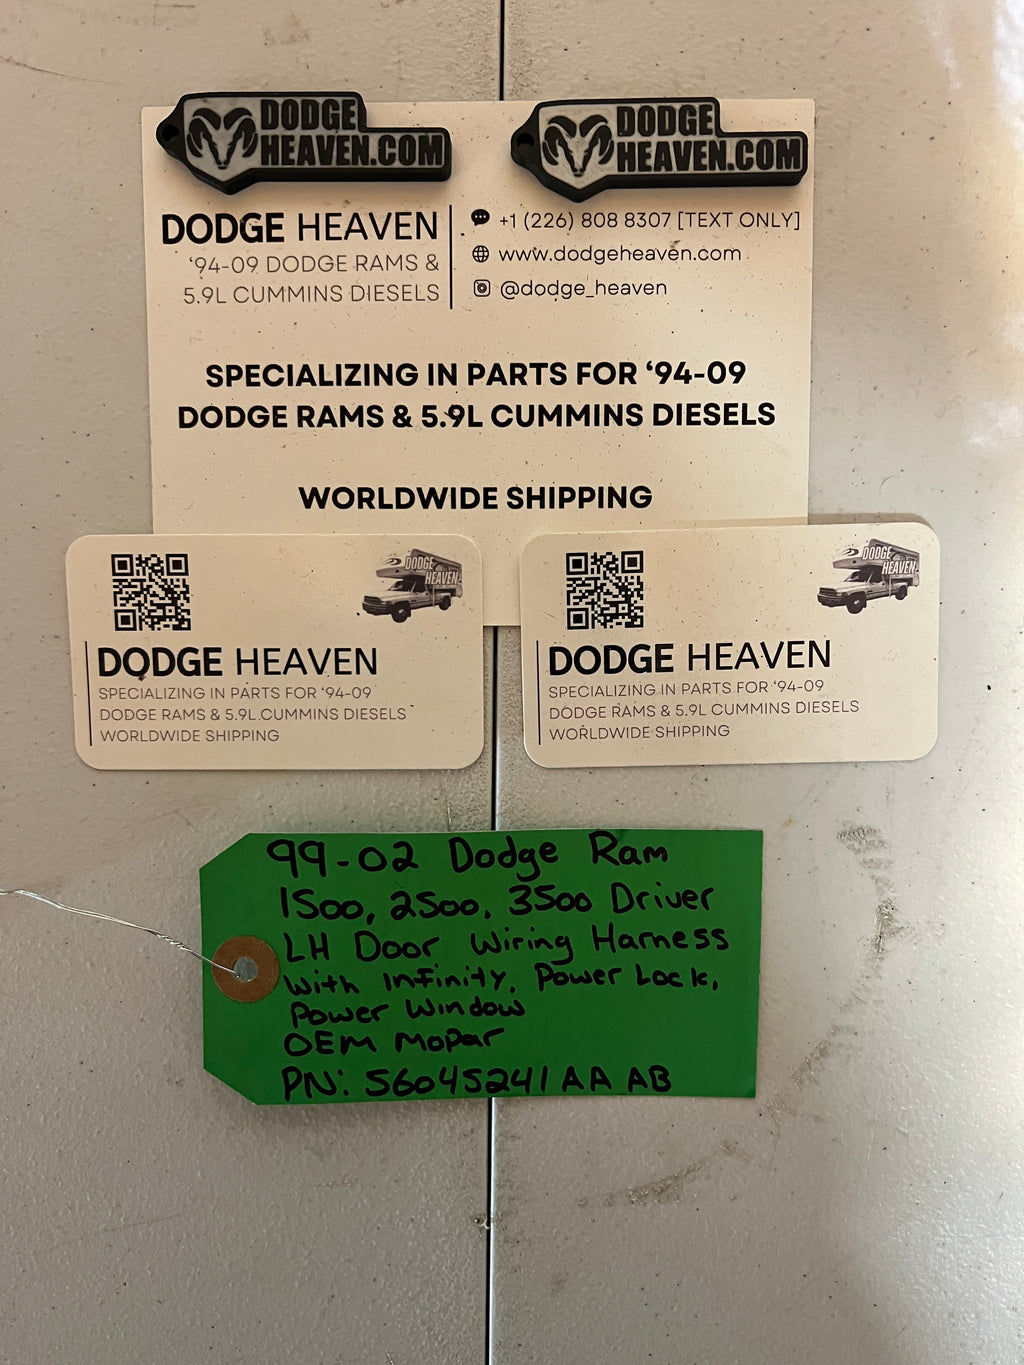 DODGE
HEAVEN.COM
DODGE
HEAVEN.COM
DODGE HEAVEN
'94-09 DODGE RAMS &
5.9L CUMMINS DIESELS
+1 (226) 808 8307 [TEXT ONLY]
www.dodgeheaven.com
@dodge_heaven
SPECIALIZING IN PARTS FOR '94-09
DODGE RAMS & 5.9L CUMMINS DIESELS
WORLDWIDE SHIPPING
DODGE
HEAVEN
DODGE HEAVEN
SPECIALIZING IN PARTS FOR '94-09
DODGE RAMS & 5.9L CUMMINS DIESELS
WORLDWIDE SHIPPING
DODGE
HEAVEN
DODGE HEAVEN
SPECIALIZING IN PARTS FOR '94-09
DODGE RAMS & 5.9L CUMMINS DIESELS
WORLDWIDE SHIPPING
99-02 Dodge Ram
1500, 2500, 3500 Driver
LH Door Wiring Harness
With Infinity, Power Lock,
Power Window
OEM Mopar
PN: 56045241AA AB